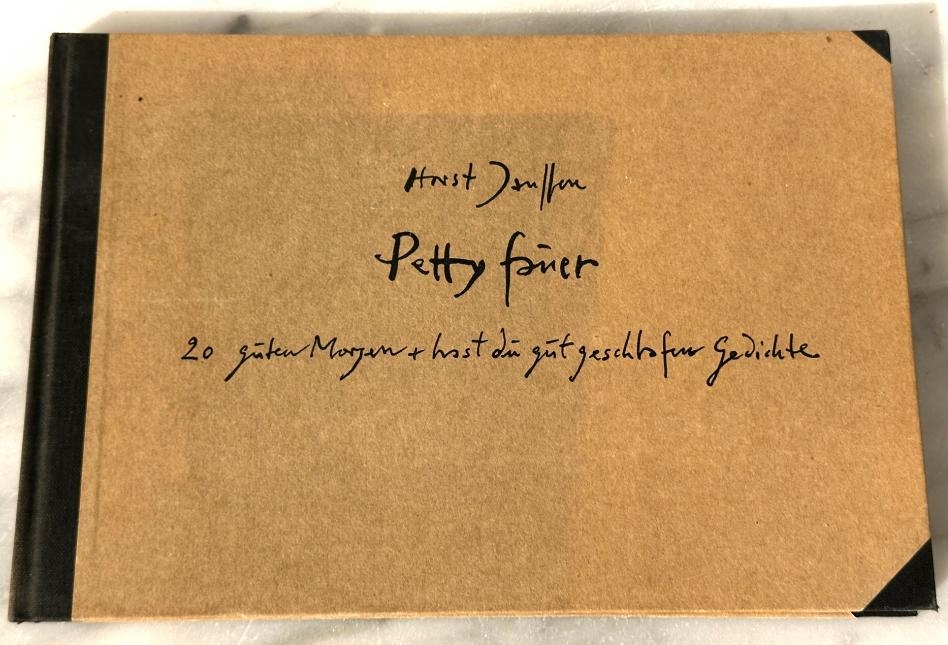 Horst Janssen
Petty fauer
20 guten Morgen + hast du gut geschlafen Gedichte